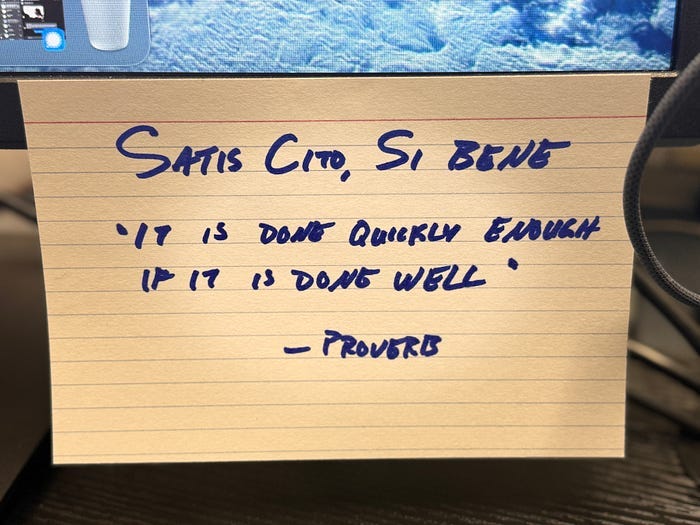 SATIS CITO, SI BENE
"IT IS DONE QUICKLY ENOUGH
IF IT IS DONE WELL"
— PROVERB